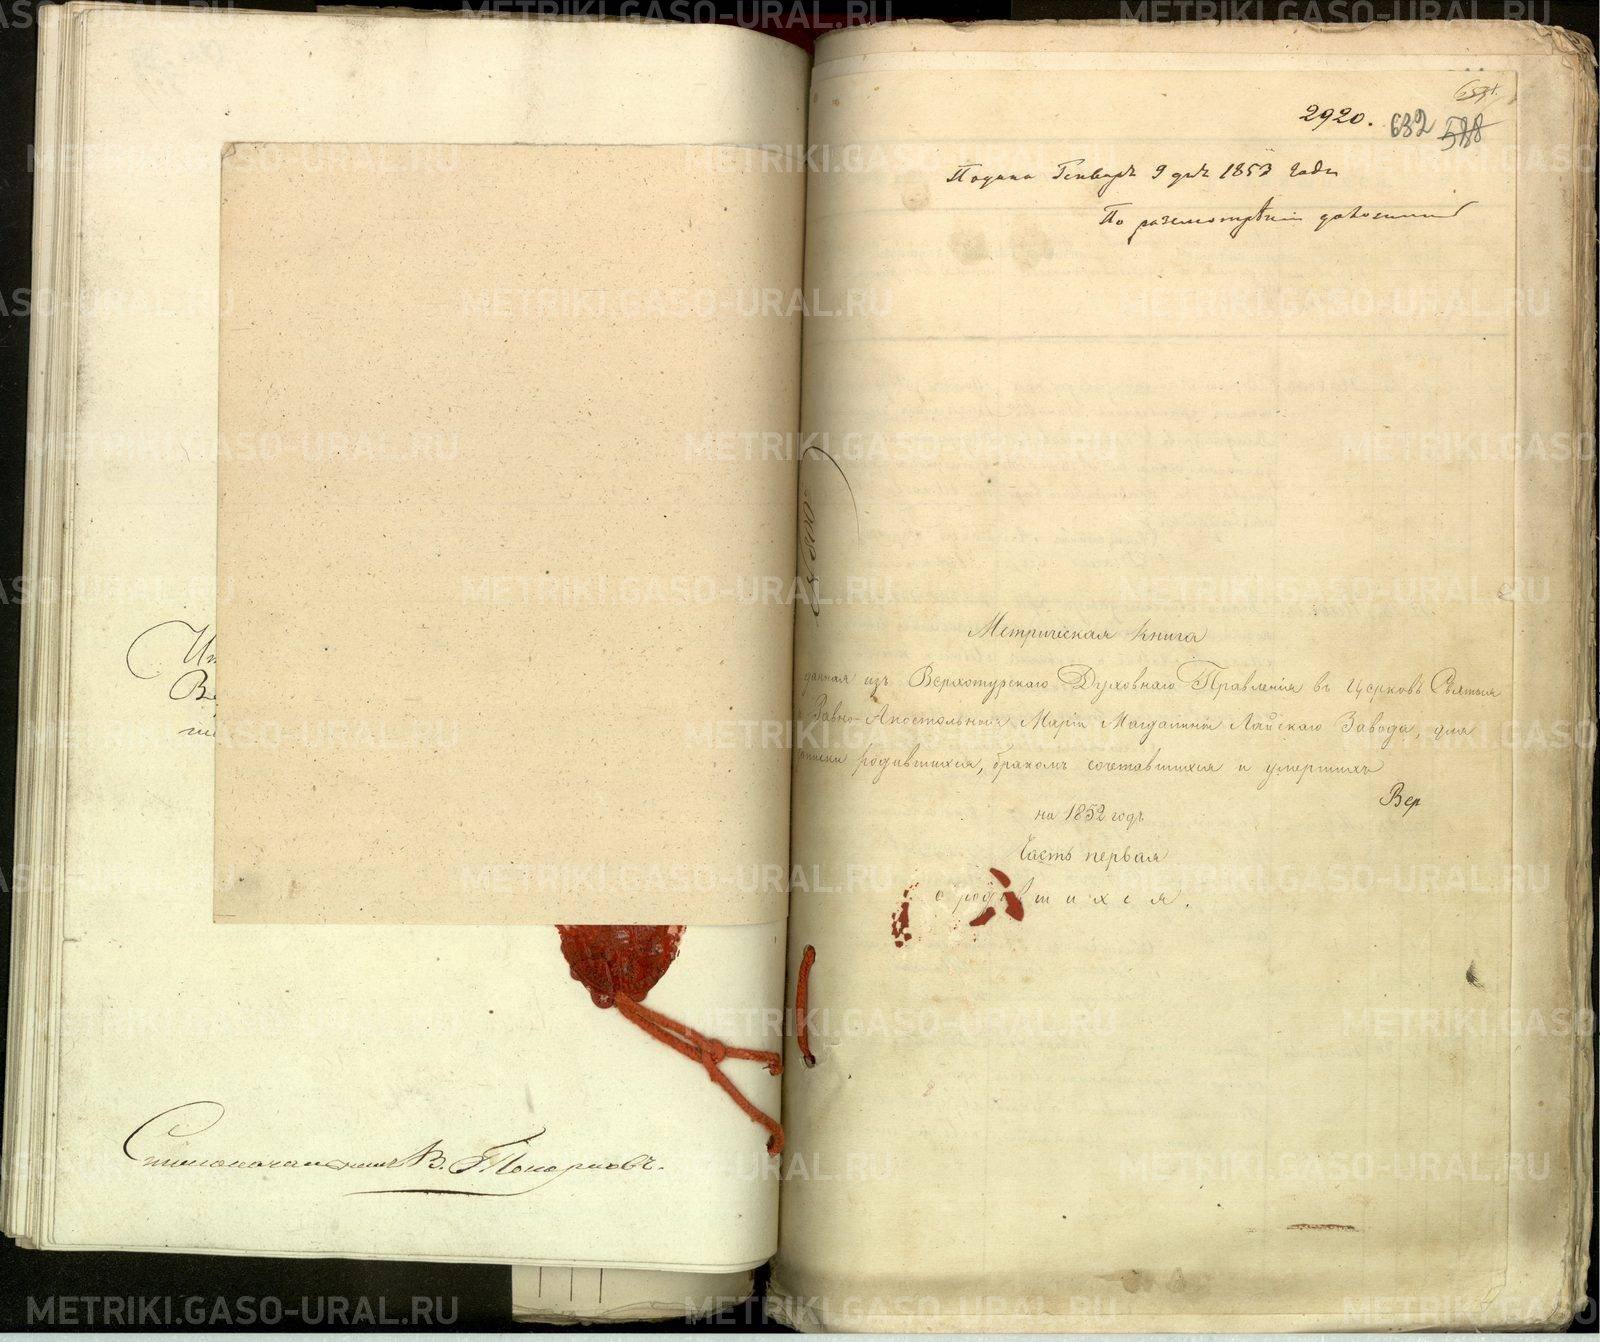 Столоначальникъ В. Топорковъ.
2920. 632 588
Подана Генваря 9 дня 1853 года
По разсмотрѣнии
Метрическая книга
данная изъ Верхотурскаго Духовнаго Правленія въ Церковь Святыя
Равно-Апостольныя Маріи Магдалины Лайскаго Завода, для
записки родившихся, бракомъ сочетавшихся и умершихъ
Вер
на 1852 годъ
Часть первая
о родившихся.
METRIKI.GASO-URAL.RU